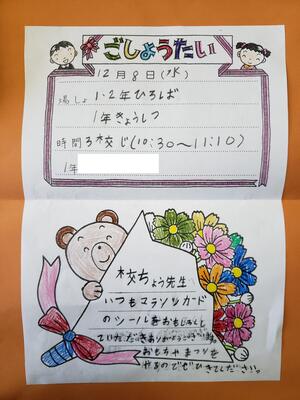 ごしょうたい
12月8日(水)
場しょ 1・2年ひろば
1年きょうしつ
時間 3校じ(10:30〜11:10)
1年
校ちょう先生
いつもマラソンカード
のシールをおもしろくして
いただきありがとうございます。
おもちゃまつりを
やるのでぜひきてください。